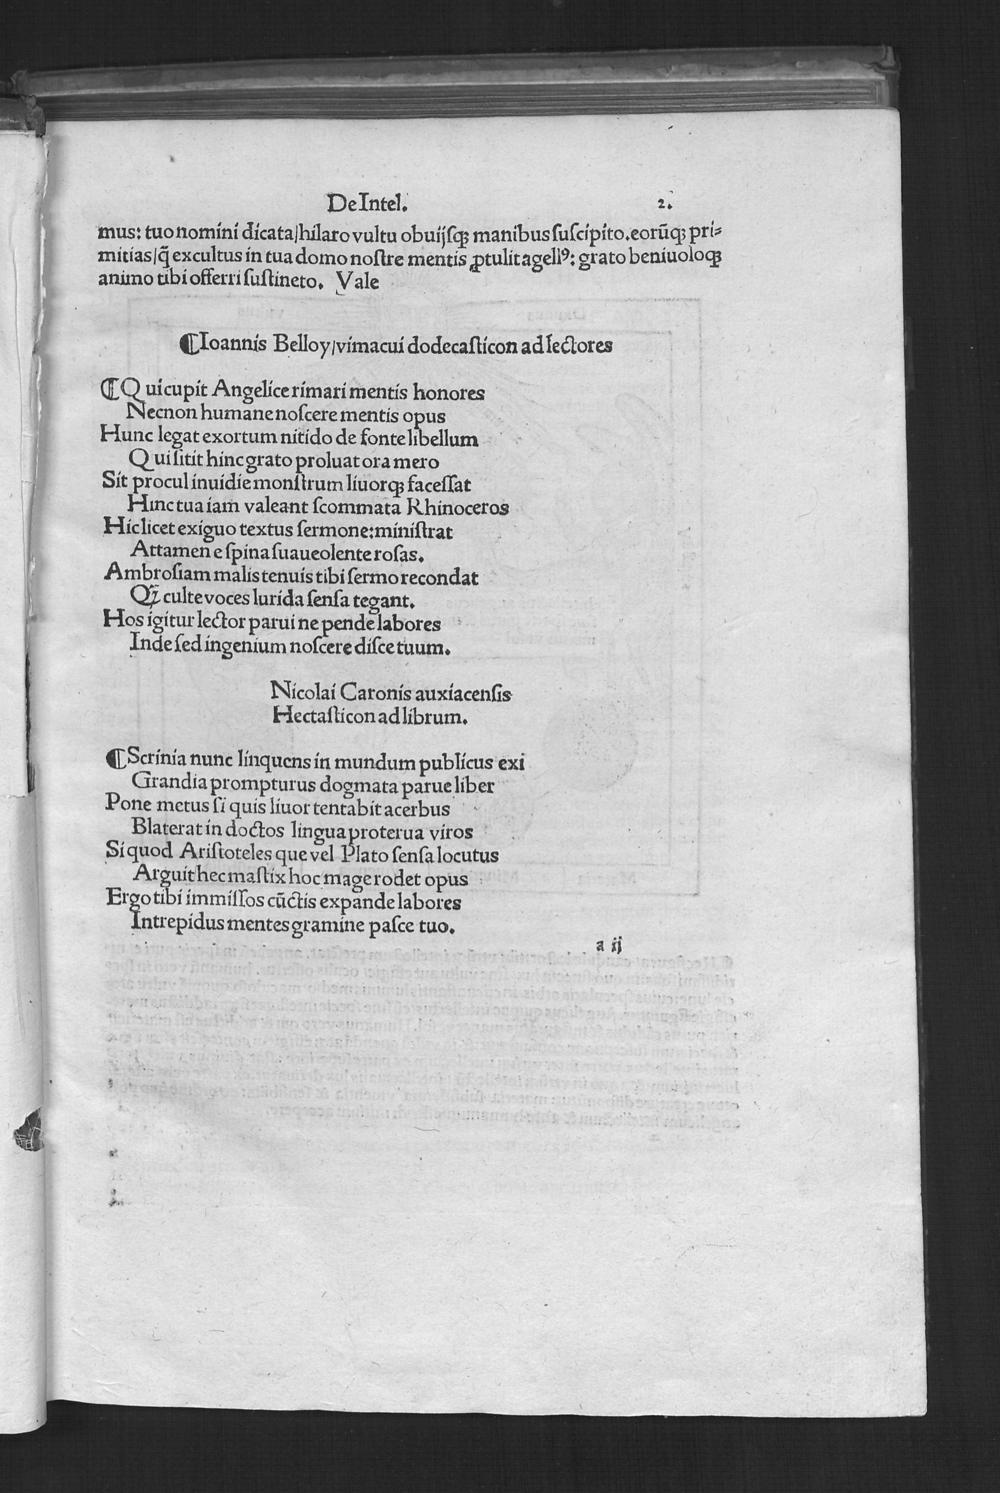 De Intel. 2.
mus: tuo nomini dicata/hilaro vultu obuijsqꝫ manibus suscipito. eorũqꝫ pri⸗
mitias/q̃ excultus in tua domo nostre mentis ꝓtulit agellꝰ: grato beniuoloqꝫ
animo tibi offerri sustineto. Vale
¶Ioannis Belloy/vimacui dodecasticon ad lectores
¶Qui cupit Angelice rimari mentis honores
Necnon humane noscere mentis opus
Hunc legat exortum nitido de fonte libellum
Qui sitit hinc grato proluat ora mero
Sit procul inuidie monstrum liuorqꝫ facessat
Hinc tua iam valeant scommata Rhinoceros
Hic licet exiguo textus sermone: ministrat
Attamen e spina suaueolente rosas.
Ambrosiam malis tenuis tibi sermo recondat
Qꝫ culte voces lurida sensa tegant.
Hos igitur lector parui ne pende labores
Inde sed ingenium noscere disce tuum.
Nicolai Caronis auxiacensis
Hectasticon ad librum.
¶Scrinia nunc linquens in mundum publicus exi
Grandia prompturus dogmata parue liber
Pone metus si quis liuor tentabit acerbus
Blaterat in doctos lingua proterua viros
Si quod Aristoteles que vel Plato sensa locutus
Arguit hec mastix hoc mage rodet opus
Ergo tibi immissos cũctis expande labores
Intrepidus mentes gramine pasce tuo.
a ij